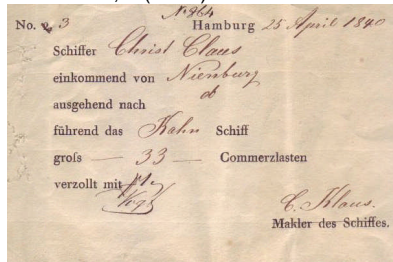 No 264
No. 3 Hamburg 25 April 1840
Schiffer Christ Claus
einkommend von Nienburg
ausgehend nach do
führend das Kahn Schiff
groſs — 33 — Commerzlasten
verzollt mit
C. Klaus.
Makler des Schiffes.